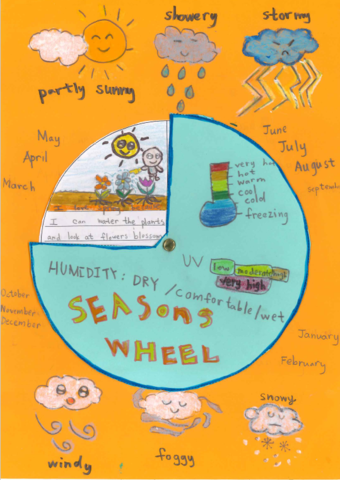 showery
stormy
partly sunny
May
April
March
June
July
August
very hot
hot
warm
cool
cold
freezing
I can water the plants
and look at flowers blossom
UV
low moderate high
very high
HUMIDITY: DRY /comfortable/wet
SEASONS
WHEEL
October
November
December
January
February
snowy
windy
foggy